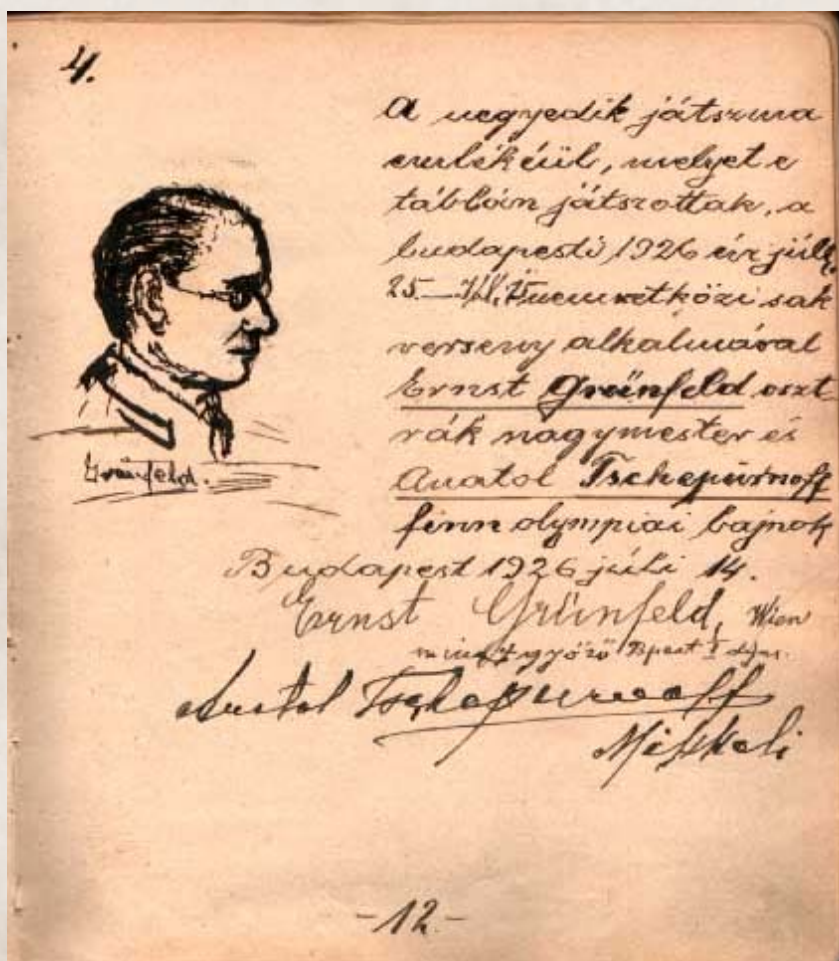 4.
A negyedik játszma
emlékéül, melyet e
táblán játszottak, a
budapesti 1926 év júli
25. nemzetközi sak
verseny alkalmával
Ernst Grünfeld oszt
rák nagymester és
Anatol Tschepurnoff
finn olympiai bajnok
Grünfeld.
Budapest 1926 júli 14.
Ernst Grünfeld, Wien
mint győző Bpest
Anatol Tschepurnoff
-12-